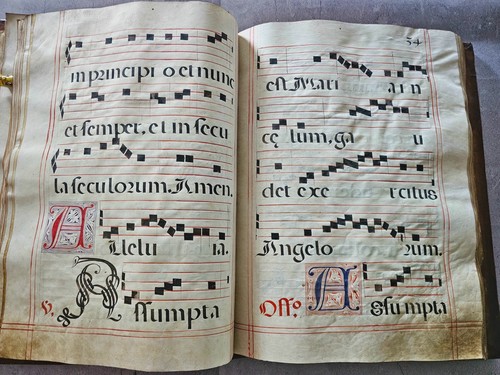 in principi o et nunc
et semper, et in secu
la seculorum. Amen.
Allelu ia.
℣. Assumpta
est Mari a i n
cę lum, ga u
det exe rcitus
Angelo rum.
Offº. Assumpta